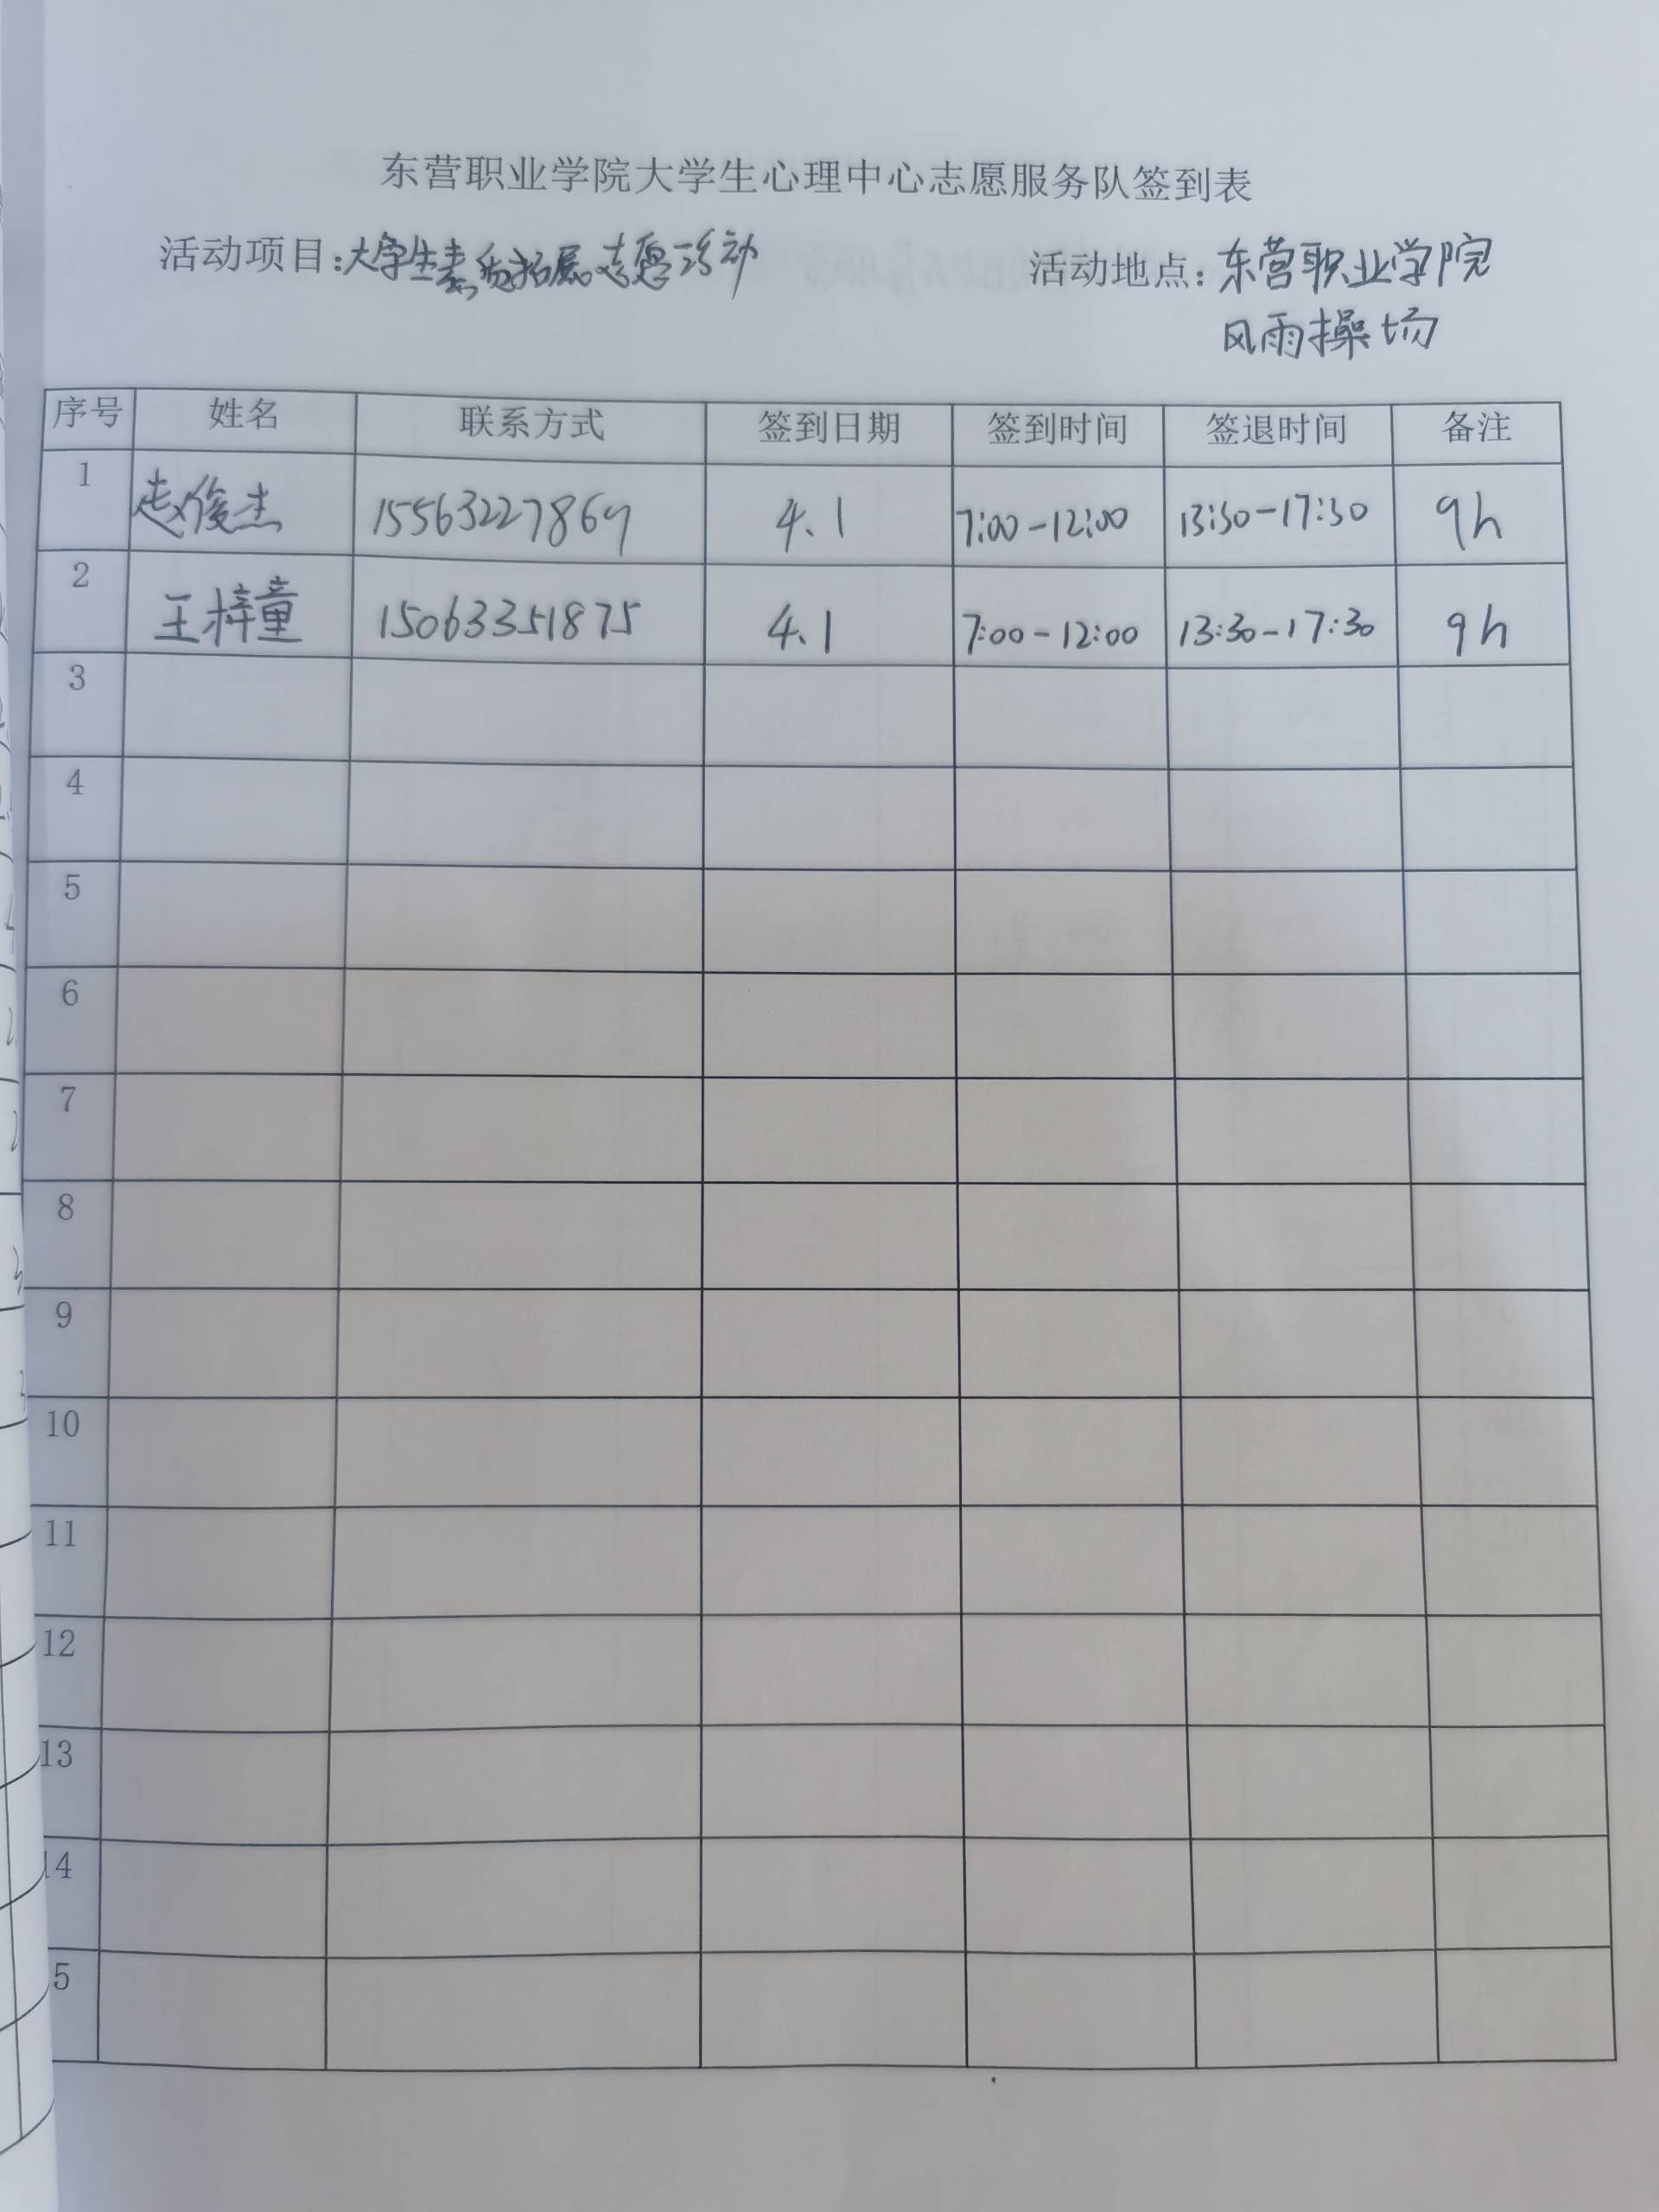 东营职业学院大学生心理中心志愿服务队签到表
活动项目：大学生素质拓展志愿活动 活动地点：东营职业学院
风雨操场
序号 姓名 联系方式 签到日期 签到时间 签退时间 备注
1 赵俊杰 15563227869 4.1 7:00-12:00 13:30-17:30 9h
2 王梓童 15063351875 4.1 7:00-12:00 13:30-17:30 9h
3
4
5
6
7
8
9
10
11
12
13
14
5